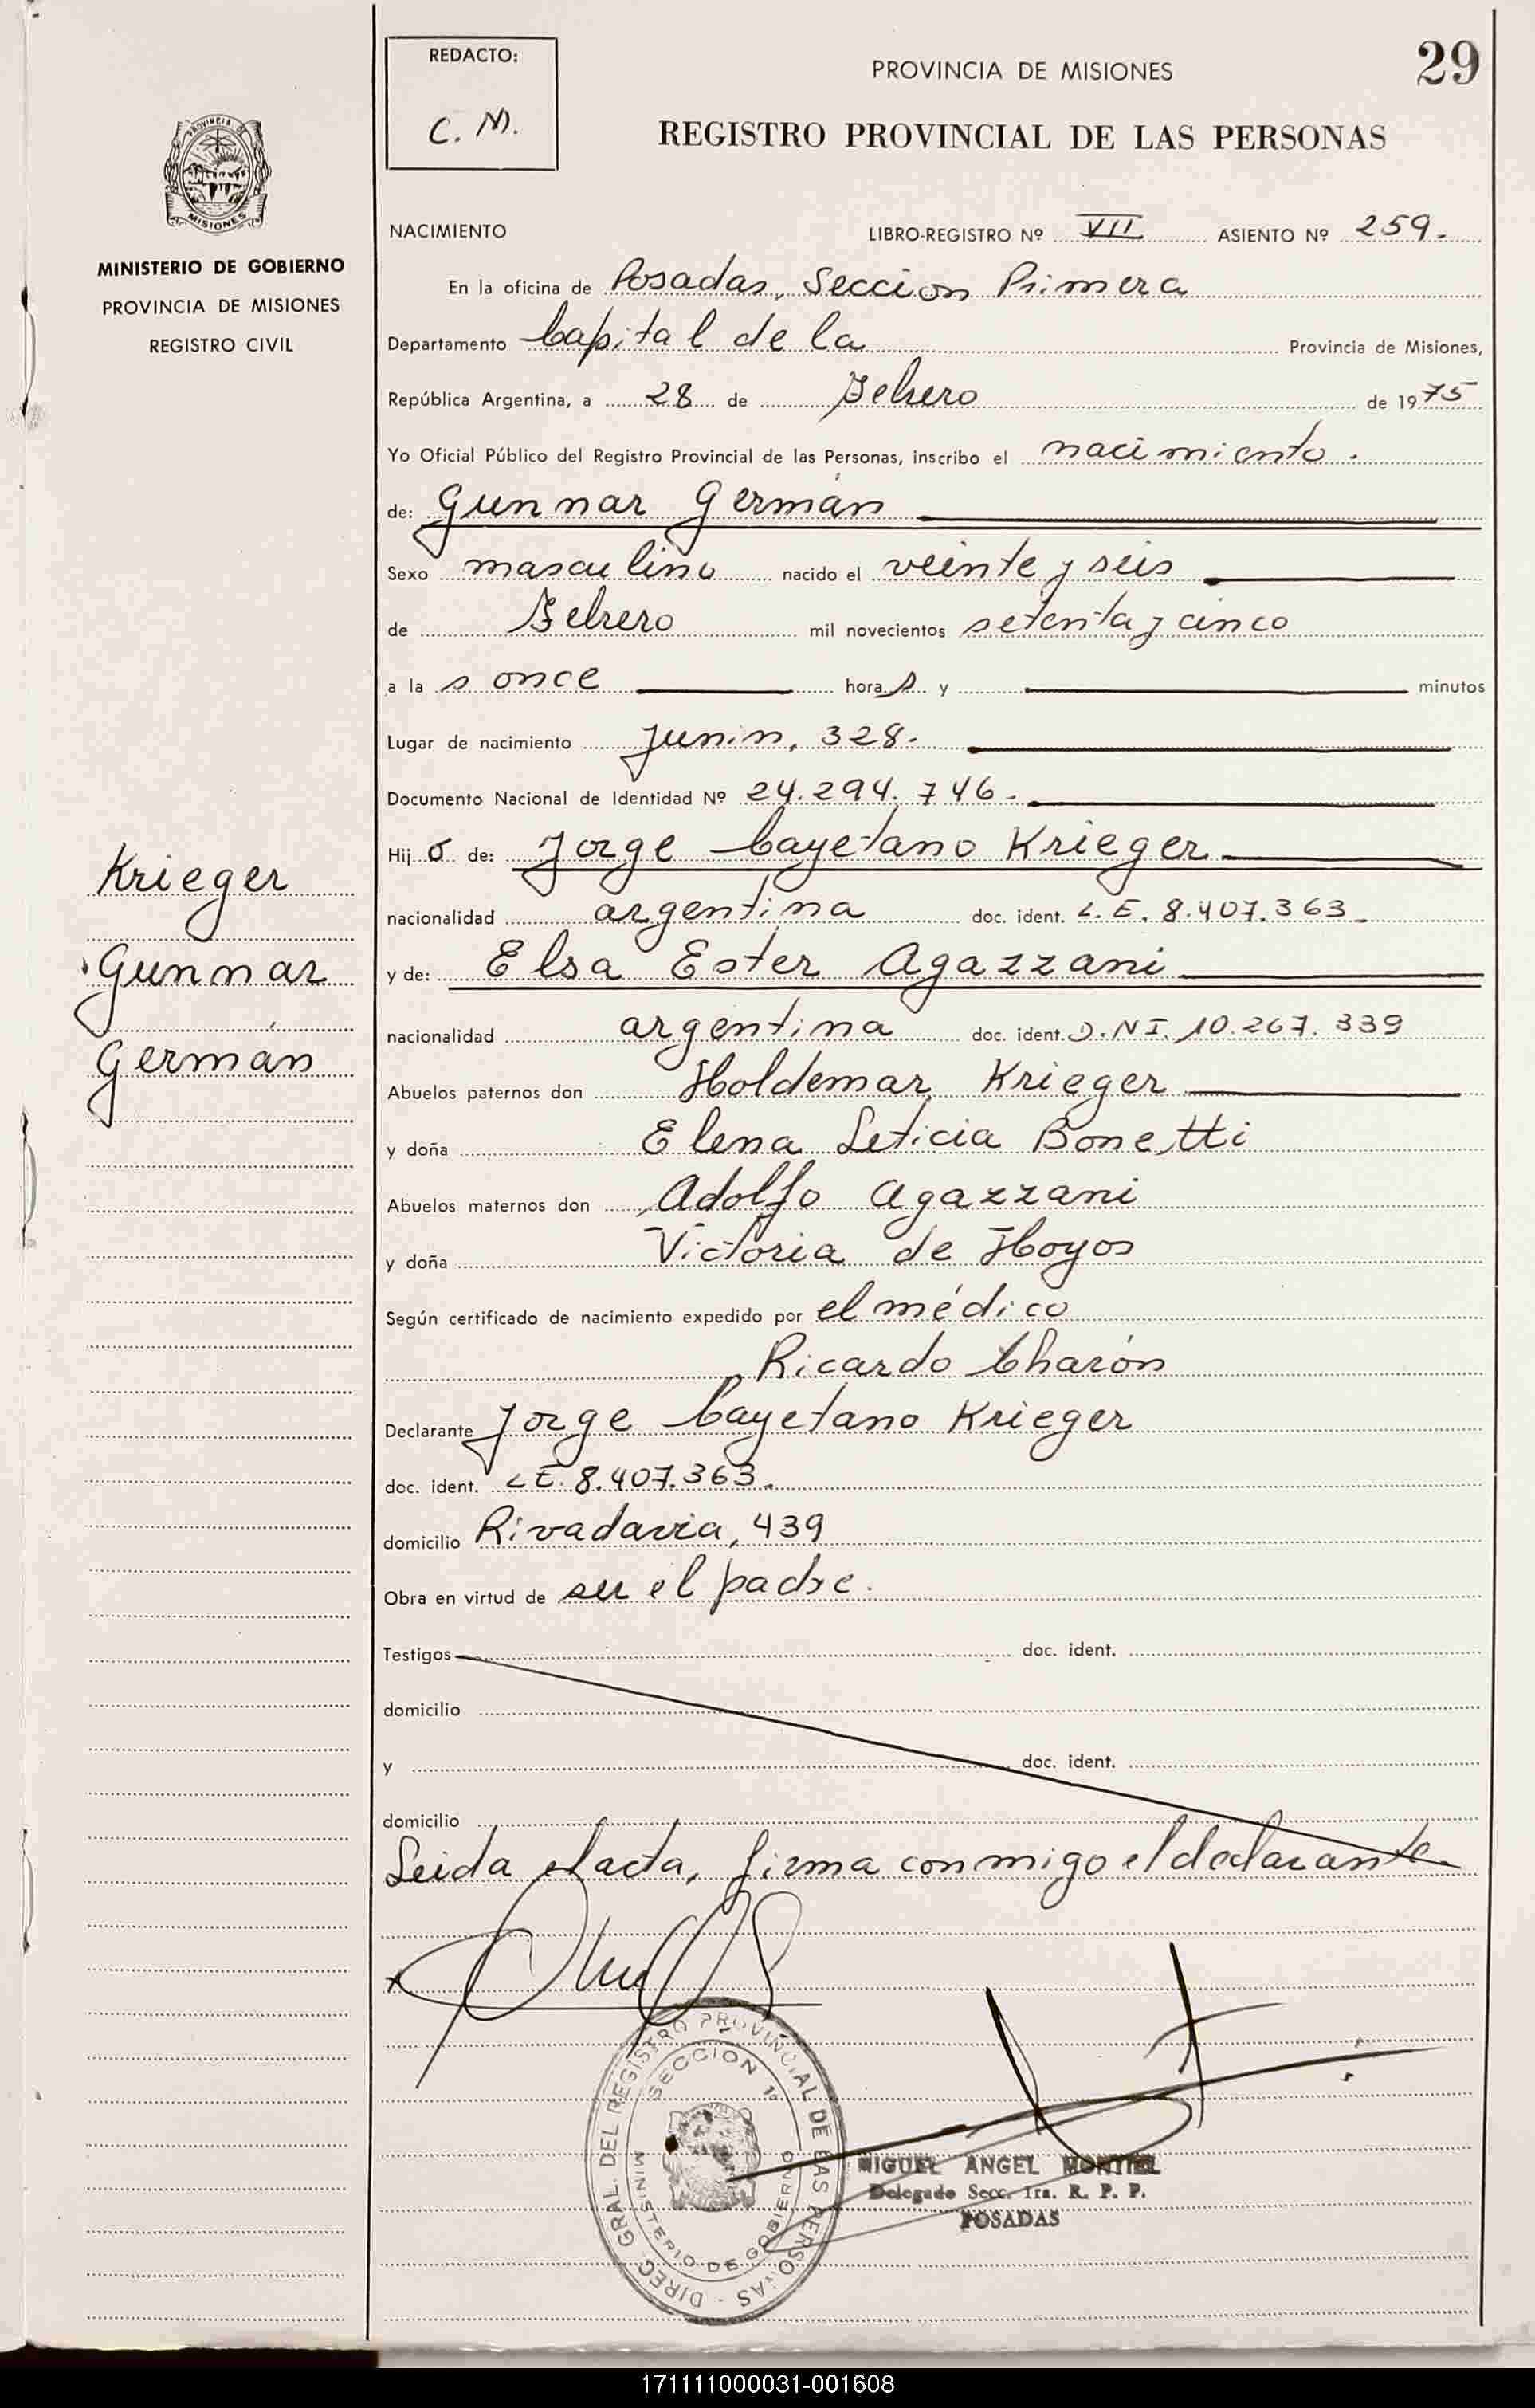 29
REDACTO:
C. M.
PROVINCIA DE MISIONES
REGISTRO PROVINCIAL DE LAS PERSONAS
PROVINCIA DE
MISIONES
MINISTERIO DE GOBIERNO
PROVINCIA DE MISIONES
REGISTRO CIVIL
NACIMIENTO LIBRO-REGISTRO Nº VII ASIENTO Nº 259.
En la oficina de Posadas, Seccion Primera
Departamento Capital de la Provincia de Misiones,
República Argentina, a 28 de Febrero de 1975
Yo Oficial Público del Registro Provincial de las Personas, inscribo el nacimiento.
de: Gunnar Germán
Sexo masculino nacido el veinte y seis
de Febrero mil novecientos setenta y cinco
a la s once hora s y minutos
Lugar de nacimiento Junin, 328.
Documento Nacional de Identidad Nº 24.294.746.
Hij o de: Jorge Cayetano Krieger
nacionalidad argentina doc. ident. L.E. 8.407.363
y de: Elsa Ester Agazzani
nacionalidad argentina doc. ident. D.N.I. 10.267.339
Abuelos paternos don Holdemar Krieger
y doña Elena Leticia Bonetti
Abuelos maternos don Adolfo Agazzani
y doña Victoria de Hoyos
Según certificado de nacimiento expedido por el médico
Ricardo Charón
Declarante Jorge Cayetano Krieger
doc. ident. L.E. 8.407.363.
domicilio Rivadavia, 439
Obra en virtud de ser el padre.
Testigos doc. ident.
domicilio
y doc. ident.
domicilio
Leida el acta, firma conmigo el declarante
Krieger
Gunnar
Germán
DIREC. GRAL. DEL REGISTRO PROVINCIAL DE LAS PERSONAS
SECCION 1º
MINISTERIO DE GOBIERNO
MIGUEL ANGEL MONTIEL
Delegado Secc. 1ra. R. P. P.
POSADAS
171111000031-001608